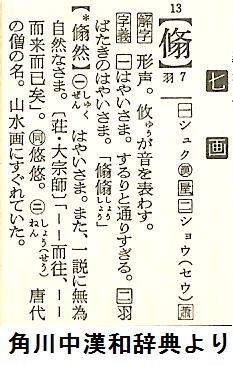 七画
13
【翛】羽7 ㊀シュク㊈屋㊁ショウ(セウ)蕭
解字 形声。攸ゅうが音を表わす。
字義 ㊀はやいさま。するりと通りすぎる。㊁羽
ばたきのはやいさま。「翛翛しょうしょう」
【*翛然】㊀しゅくぜん はやいさま。また、一説に無為
自然なさま。〔荘・大宗師〕「――而往、――
而来而已矣」。㊂悠悠。㊁しょう(せう)ねん 唐代
の僧の名。山水画にすぐれていた。
角川中漢和辞典より